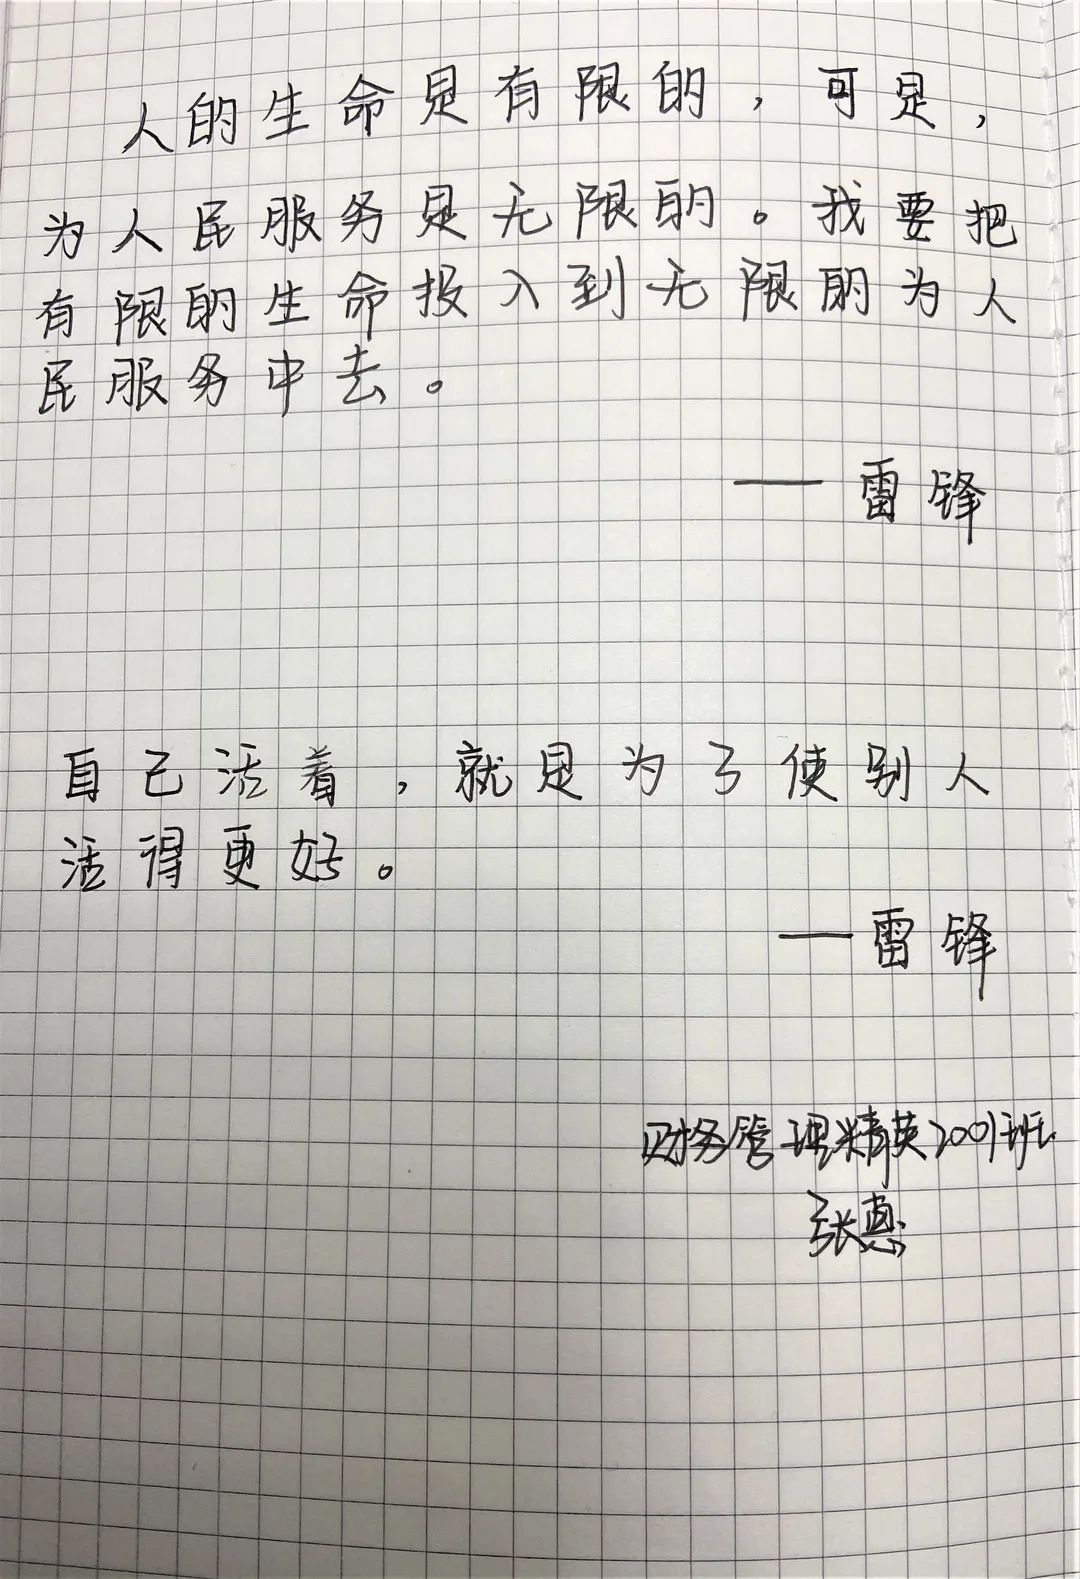 人的生命是有限的，可是，
为人民服务是无限的。我要把
有限的生命投入到无限的为人
民服务中去。
——雷锋
自己活着，就是为了使别人
活得更好。
——雷锋
财务管理精英2001班
张惠